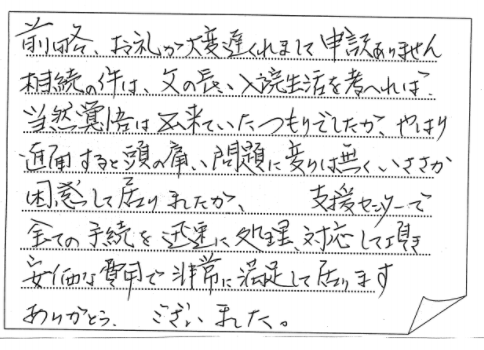 前略、お礼が大変遅くれまして申訳ありません
相続の件は、父の長い入院生活を考へれば
当然覚悟は出来ていたつもりでしたが、やはり
直面すると頭の痛い問題に変りは無くいささか
困惑して居りましたが、 支援センターで
全ての手続を迅速に処理、対応して頂き
安価な費用で非常に満足して居ります
ありがとう、ございました。